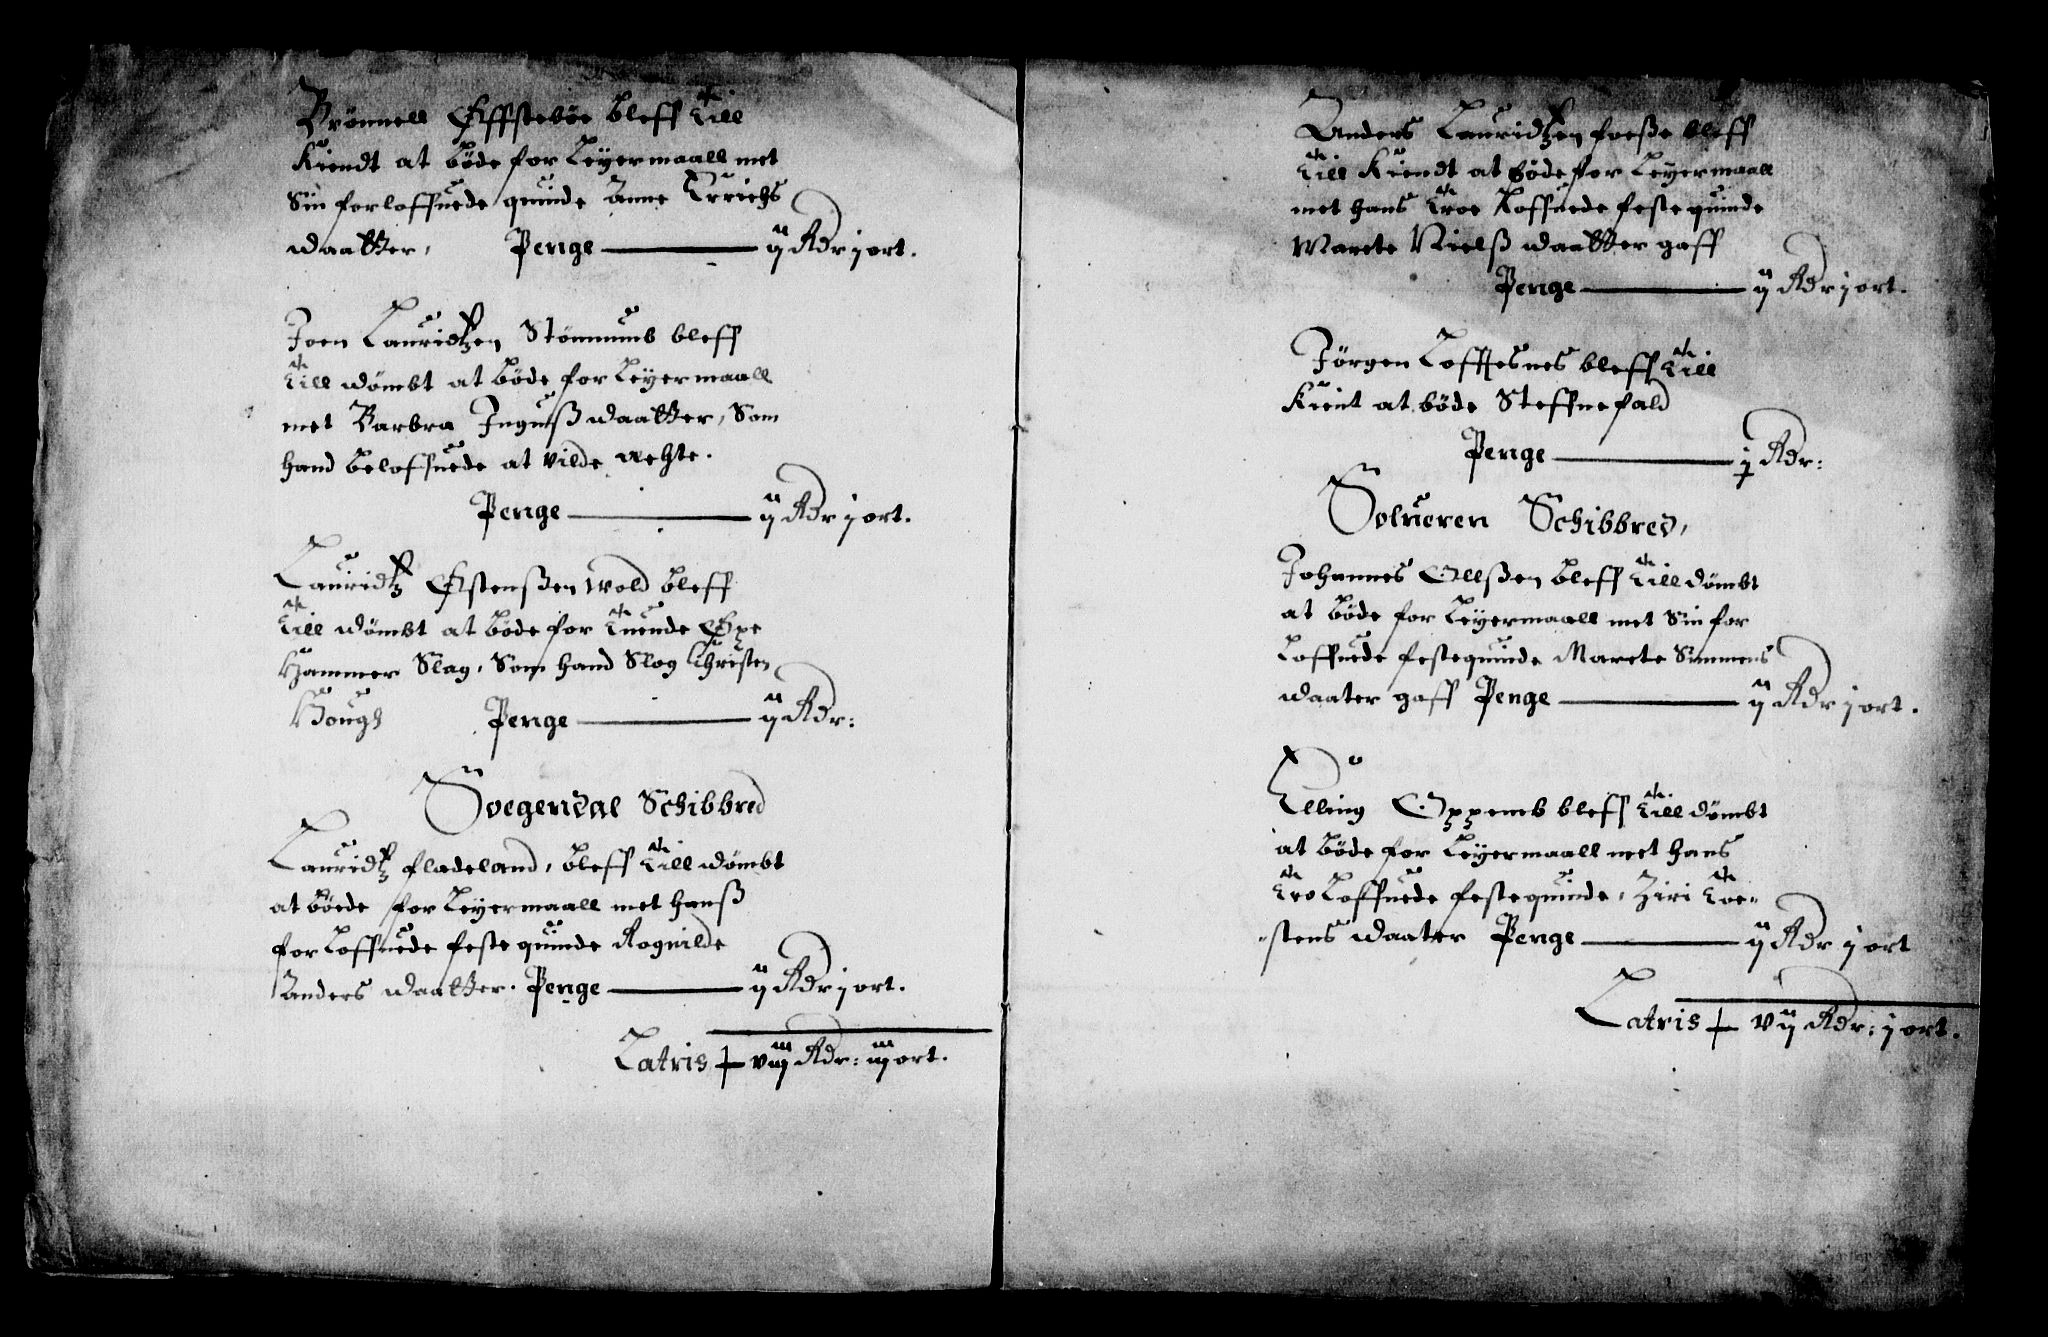 Brönnell Effstebøe bleff till
Kiendt at bøde for Leyermaall met
Sin forloffuede quinde Anne Errichs
daatter, Penge — ij Rdr j ort.
Joen Lauridtzen Stömnumb bleff
till dömbt at bøde for Leyermaall
met Barbra Inguß daatter, Som
hand beloffuede at vilde echte.
Penge — ij Rdr j ort.
Lauridtz Estenßen wold bleff
till dömbt at bøde for tuende Øxe
Hammer Slag, Som hand Slog Christen
Hougs Penge — ij Rdr:
Soegendal Schibbred
Lauridtz fladeland, bleff till dömbt
at bøede for Leyermaall met hanß
forloffuede feste quinde Rognilde
Anders daatter. Penge — ij Rdr j ort.
Latris + viij Rdr: iij ort.
Anders Lauridtzen foeße bleff
till Kiendt at bøde for Leyermaall
met hans troe Loffuede festequinde
Marete Nielß daatter gaff
Penge — ij Rdr j ort.
Jörgen Lofftesnes bleff till
Kient at bøde Steffnefald
Penge — j Rdr:
Solueren Schibbred,
Johannes Ollßen bleff till dömbt
at bøde for Leyermaall met Sin for
Loffuede festequinde Marete Simmens
daater gaff Penge — ij Rdr j ort.
Elling Oppemb bleff till dömbt
at bøde for Leyermaall met hans
tro Loffuede festequinde, Ziri toe-
-stens daater Penge — ij Rdr j ort
Latris + vij Rdr: j ort.